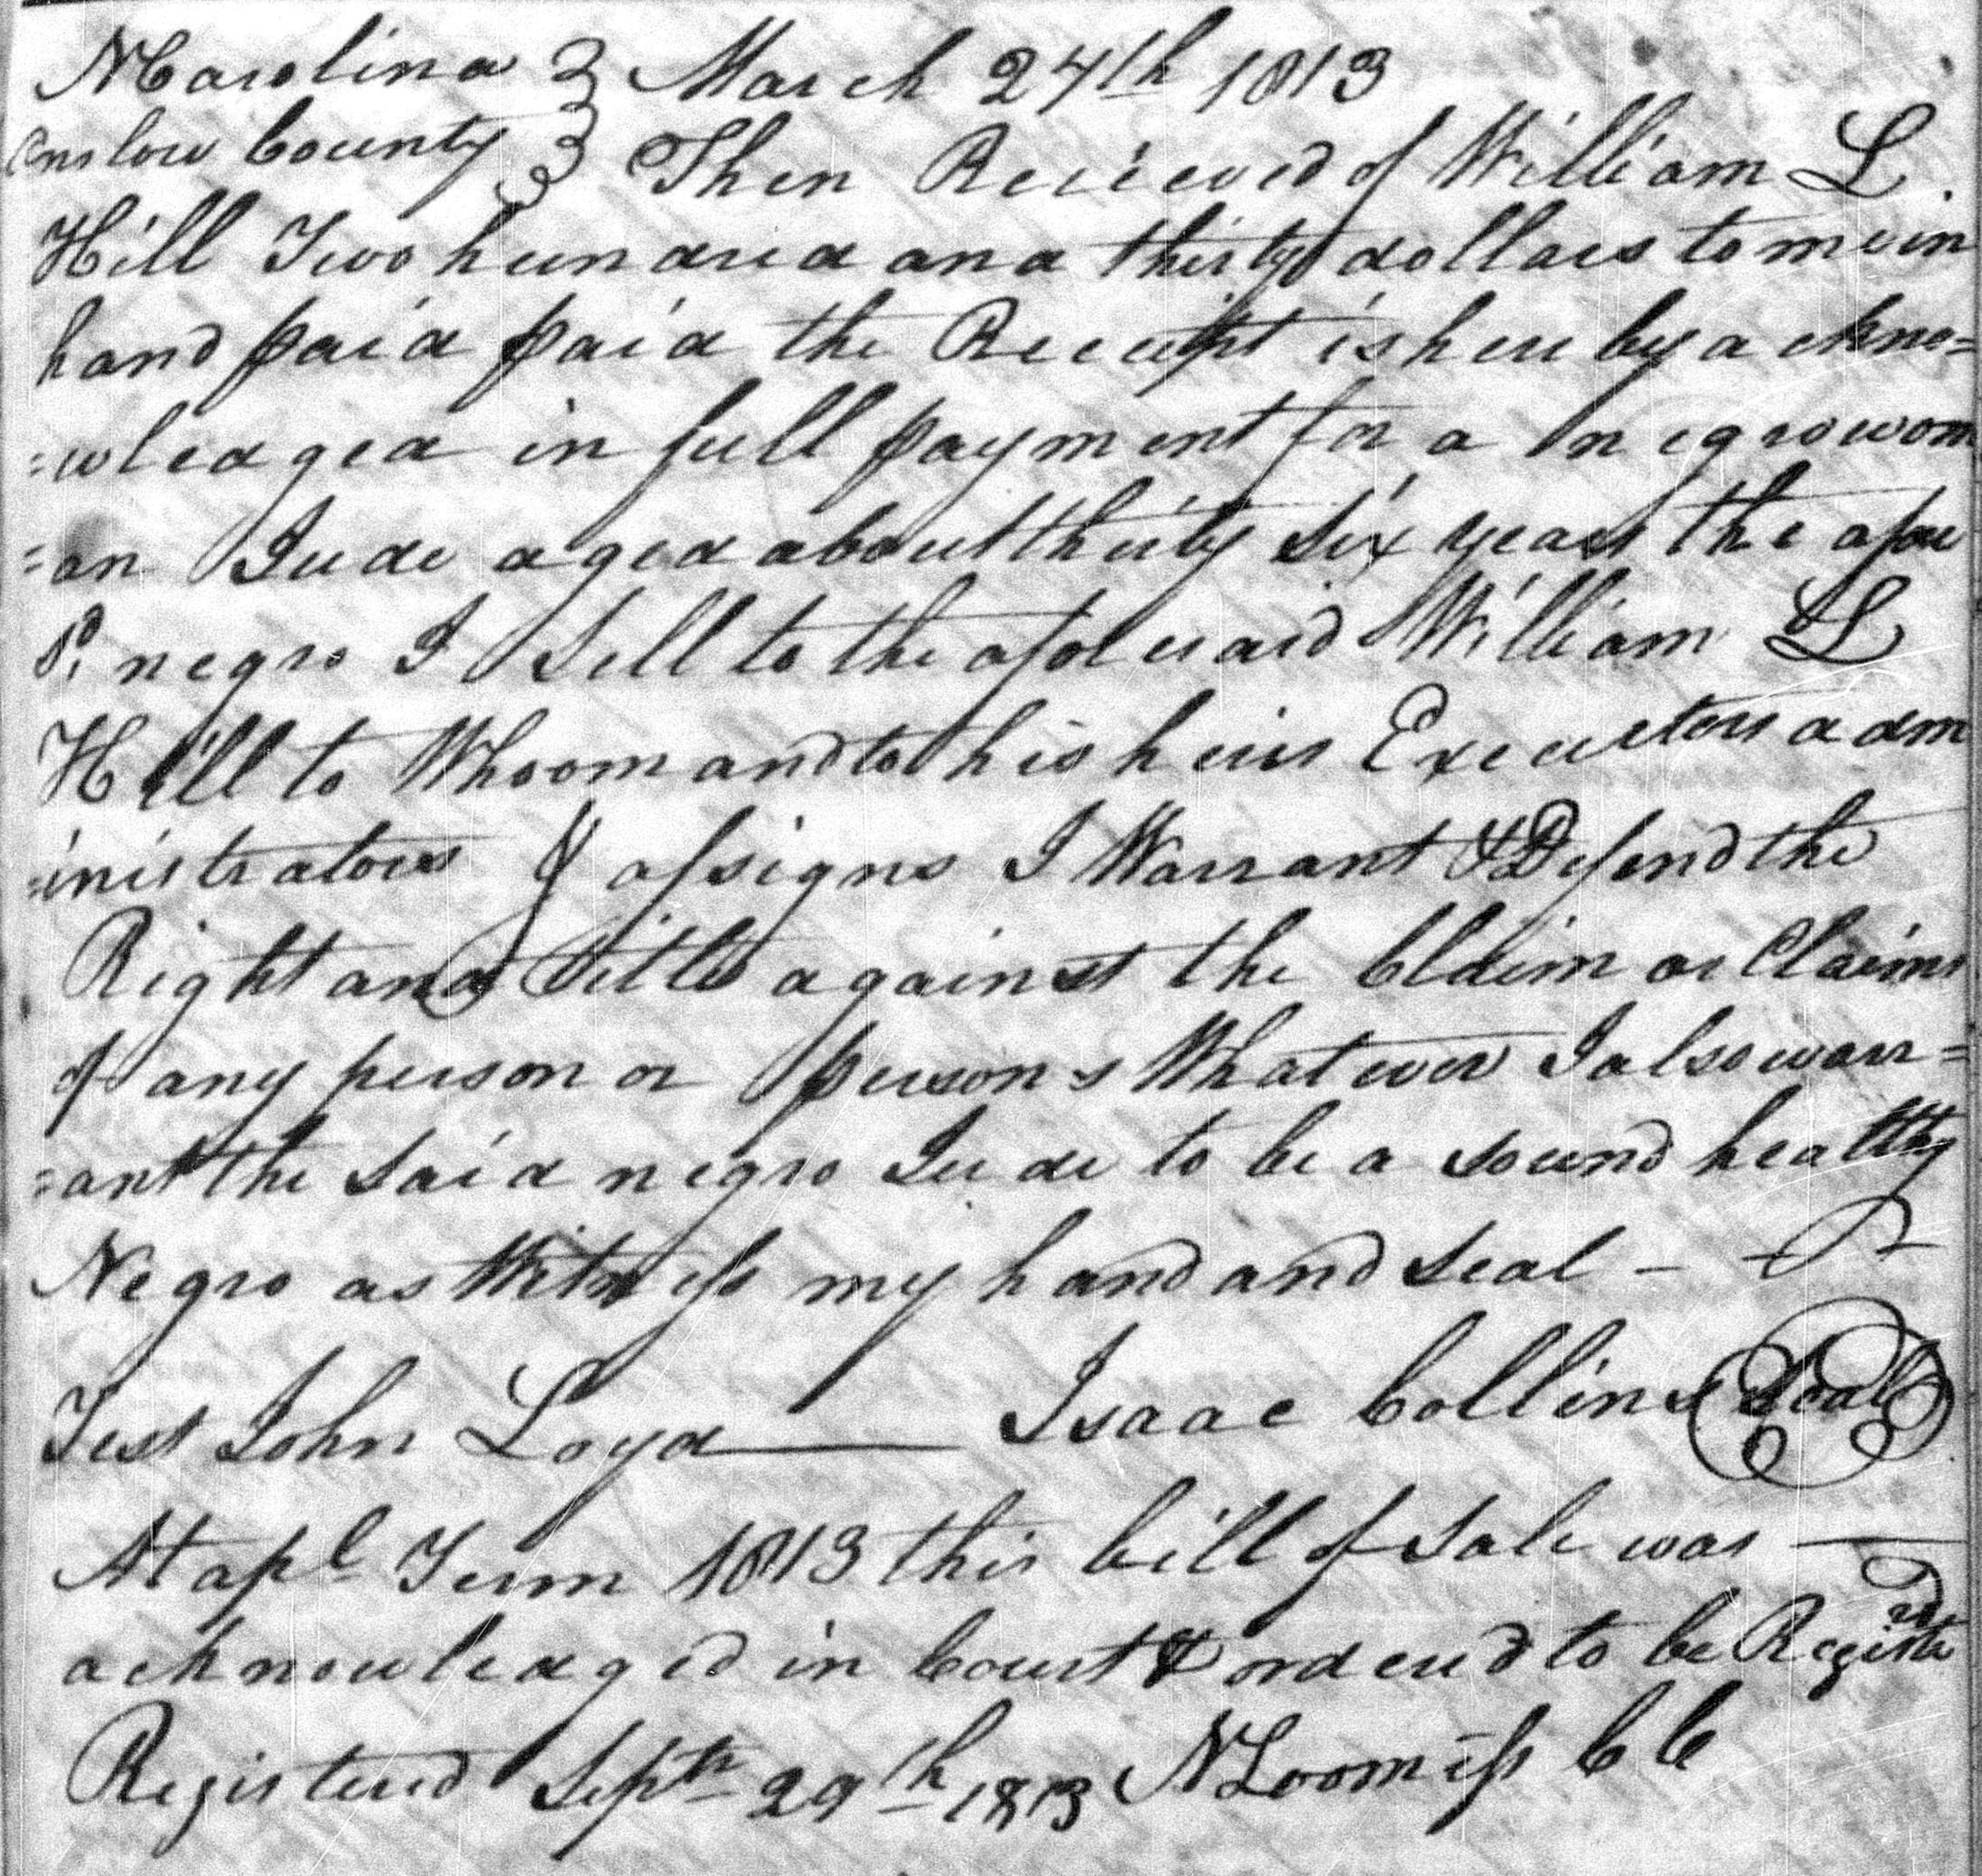 N Carolina } March 24th 1813
Onslow County } Then Recieved of William L.
Hill Two hundred and thirty dollars to me in
hand paid paid the Receipt is here by a ckno=
=wledged in full payment for a negro wom
=an Jude aged about thirty six years the afore
sd. negro I Sell to the afore said William L
Hill to Whoom and to his heirs Executors adm
=inistrators & assigns I Warrant & Defend the
Right and Title against the Claim or Claims
of any person or persons Whatever I also warr=
=ant the said negro Jude to be a sound healthy
Negro as Witness my hand and seal —
Test John Loyd — Isaac Collins Seal
At apl Term 1813 this bill of sale was —
acknowledged in Court & ordered to be Registerd
Registered Septr 29th 1813 N Loomiss CC